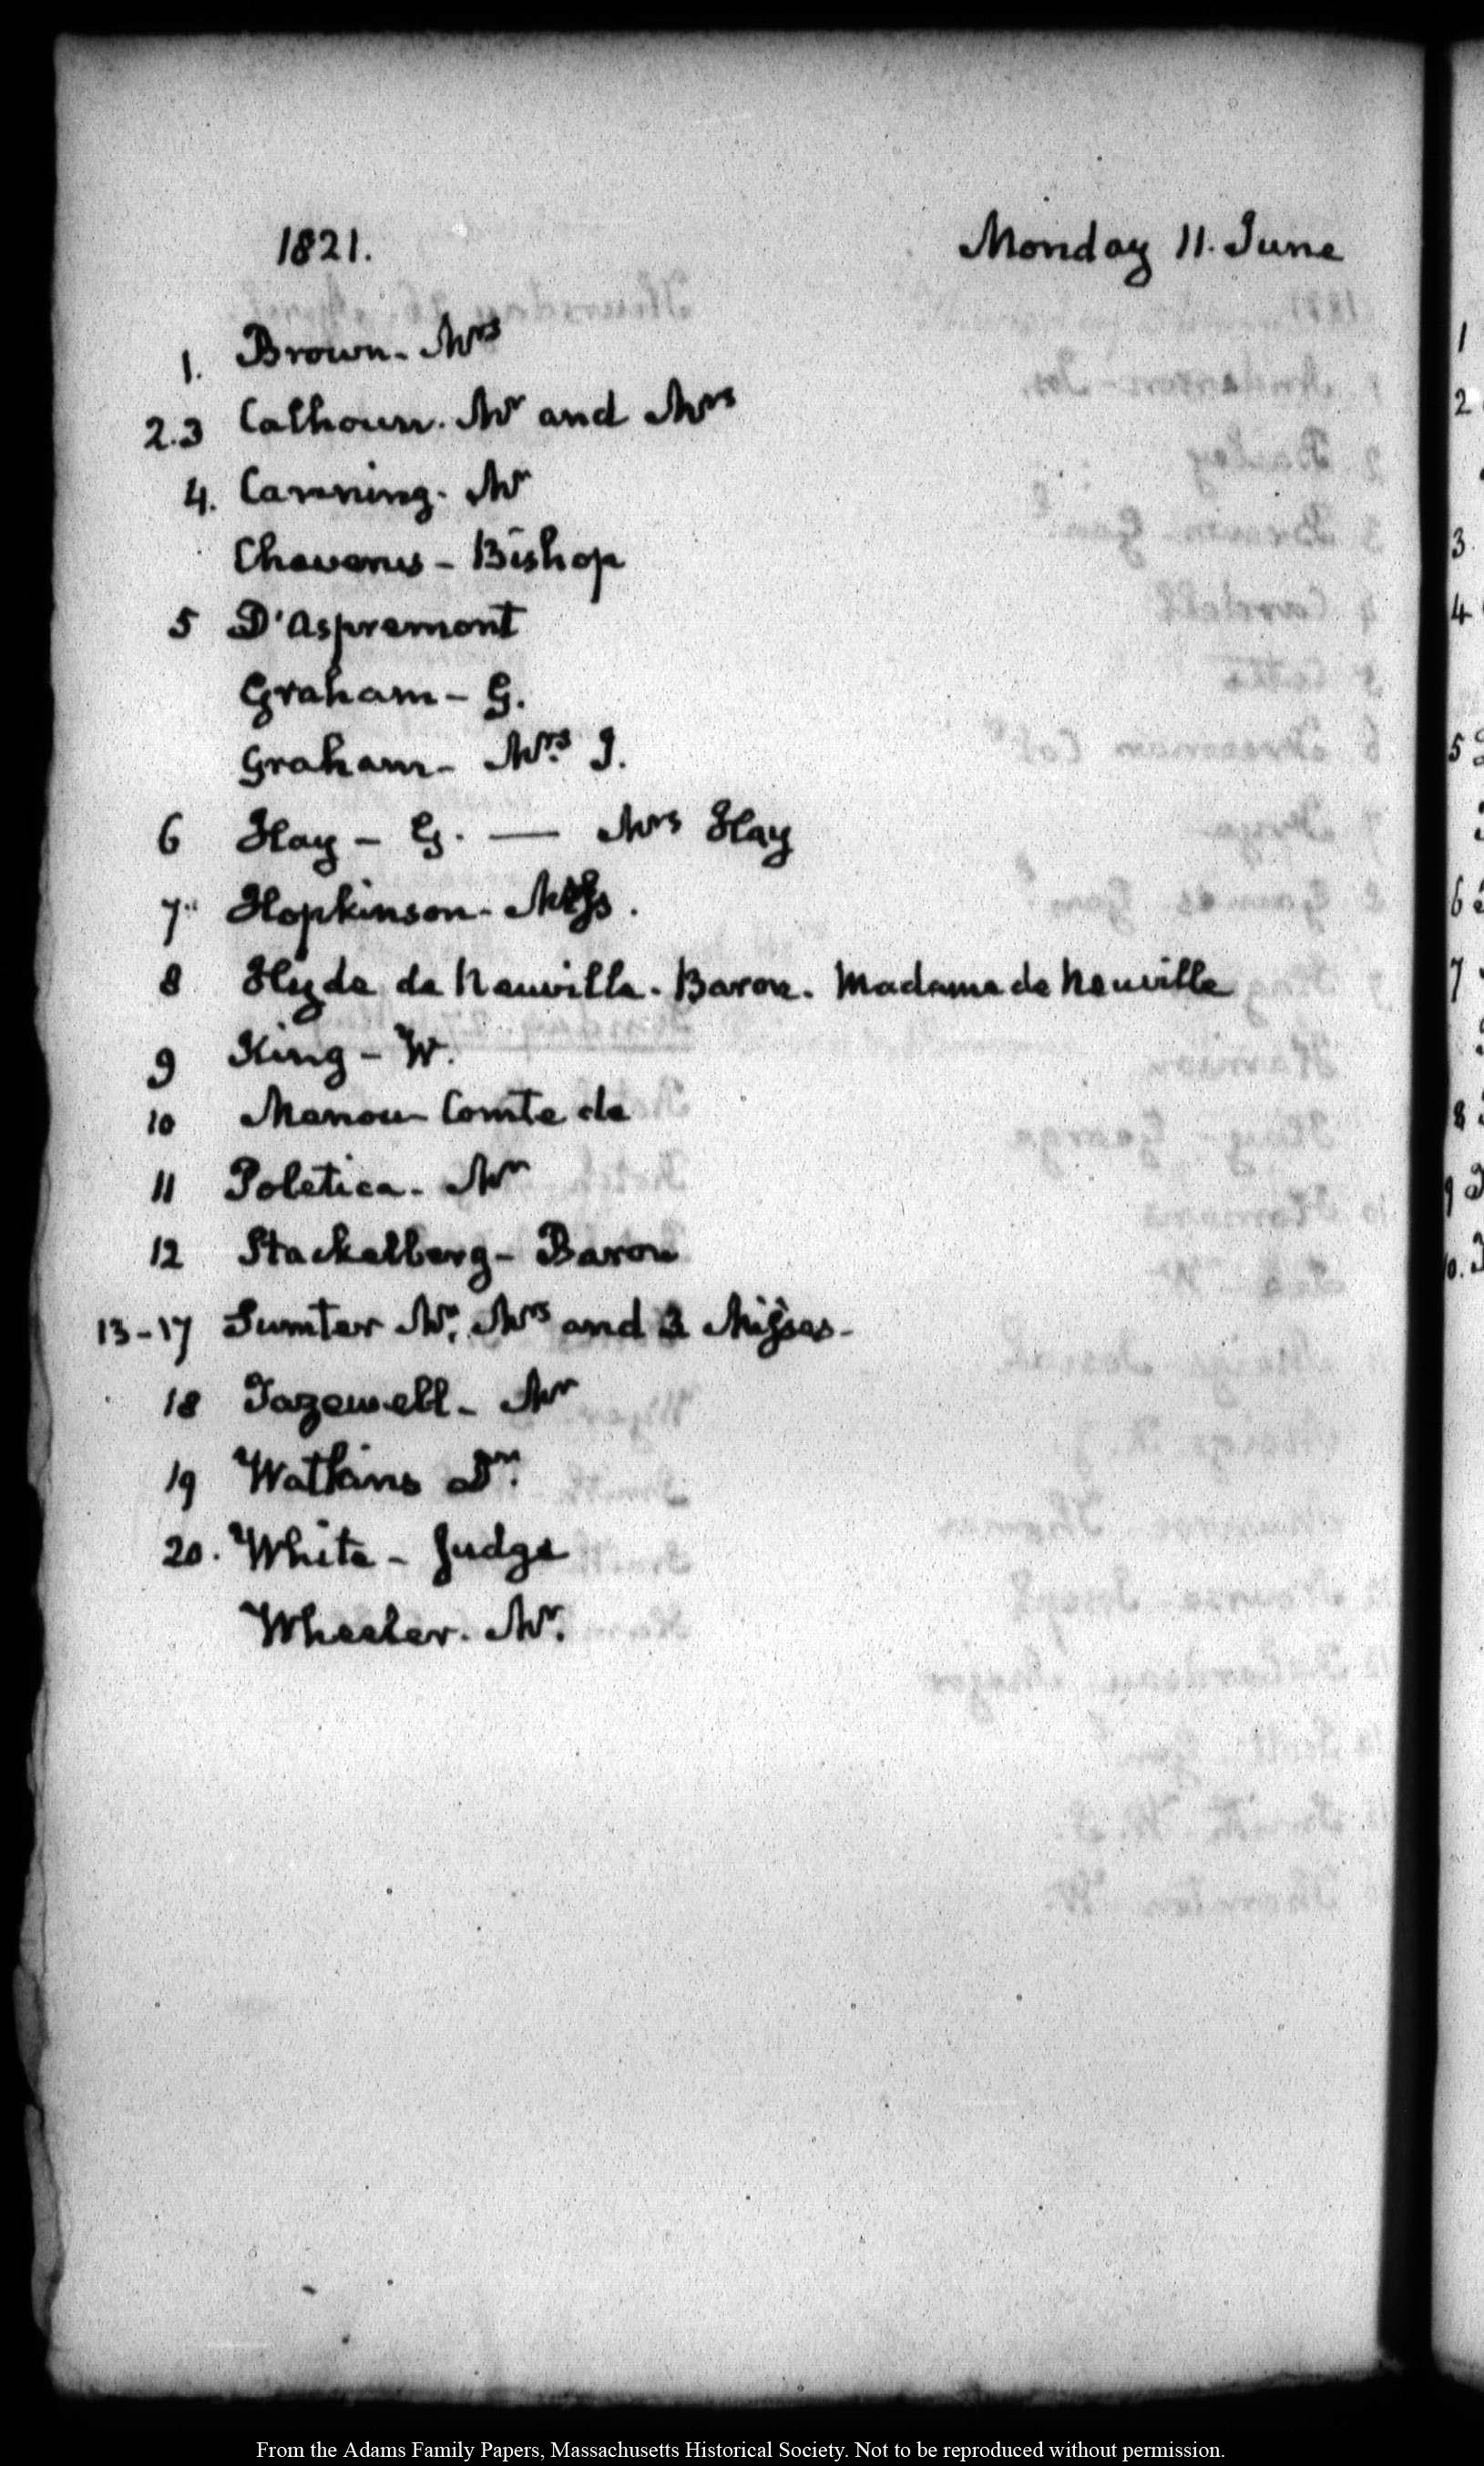 1821. Monday 11. June
1. Brown. Mrs
2.3 Calhoun. Mr and Mrs
4. Canning. Mr
Cheverus - Bishop
5 D'Aspremont
Graham - G.
Graham - Mrs. J.
6 Hay - G. — Mrs Hay
7 Hopkinson -
8 Hyde de Neuville. Baron. Madame de Neuville
9 King - W.
10 Menou Comte de
11 Poletica. Mr
12 Stackelberg - Baron
13-17 Sumter Mr. Mrs and 3 Misses -
18 Tazewell - Mr
19 Watkins Dr.
20. White - Judge
Wheeler. Mr.
1
2
3.
4
5
6
7
8
9
10.
From the Adams Family Papers, Massachusetts Historical Society. Not to be reproduced without permission.